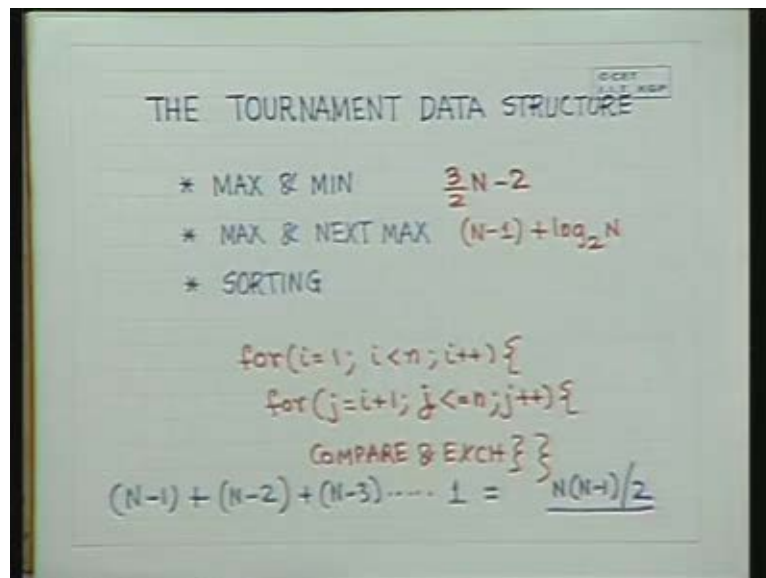 © CET
I.I.T. KGP
THE TOURNAMENT DATA STRUCTURE
* MAX & MIN 3/2 N-2
* MAX & NEXT MAX (N-1) + log₂ N
* SORTING
for(i=1; i<n; i++){
for(j=i+1; j<=n; j++){
COMPARE & EXCH } }
(N-1) + (N-2) + (N-3) ..... 1 = N(N-1)/2